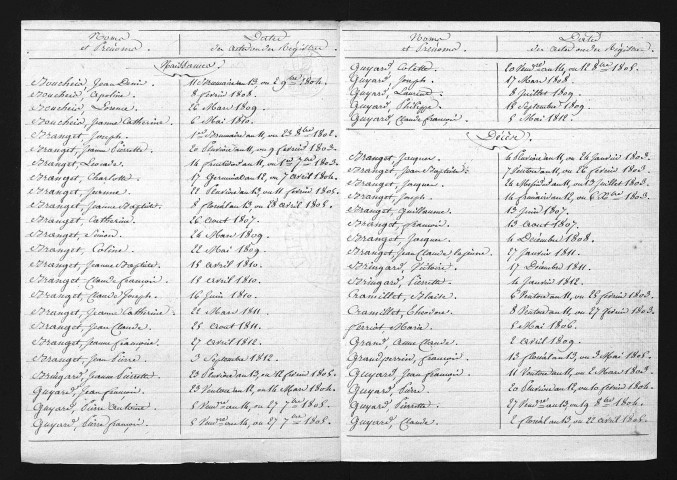 Noms et Prénoms
Dates des actes ou des Registres
Naissances.
Boucheix, Jean Denis 11 Brumaire an 13, ou 2 9bre 1804.
Boucheix, Apoline 8 février 1808.
Boucheix, Louise 26 Mars 1809.
Boucheix, Jeanne Catherine 6 Mai 1810.
Branget, Joseph 1er Brumaire an 11, ou 23 8bre 1802.
Branget, Jeanne Pierrette 20 Pluviose an 11, ou 9 février 1803.
Branget, Léonore 14 fructidor an 11, ou 1er 7bre 1803.
Branget, Charlotte 17 Germinal an 12, ou 7 avril 1804.
Branget, Jeanne 22 Pluviose an 13, ou 11 février 1805.
Branget, Jeanne Baptiste 8 floréal an 13, ou 28 avril 1805.
Branget, Catherine 26 aout 1807.
Branget, Simon 24 Mars 1809.
Branget, Coline 22 Mai 1809.
Branget, Jeanne Baptiste 18 avril 1810.
Branget, Claude françois 18 avril 1810.
Branget, Claude Joseph 16 Juin 1810.
Branget, Jeanne Catherine 22 Mars 1811.
Branget, Jean Claude 25 aout 1811.
Branget, Jeanne françoise 27 avril 1812.
Branget, Jean Pierre 3 Septembre 1812.
Bringard, Jeanne Pierrette 23 Pluviose an 13, ou 12 février 1805.
Guyard, Jean françois 23 Ventose an 12, ou 14 Mars 1804.
Guyard, Pierre Antoine 5 Vendre an 14, ou 27 7bre 1805.
Guyard, Pierre françois 5 Vendre an 14, ou 27 7bre 1805.
Noms et Prénoms
Dates des actes ou des Registres
Guyard, Colette 20 Vendre an 14, ou 12 8bre 1805.
Guyard, Joseph 17 Mars 1808.
Guyard, Laurent 8 Juillet 1809.
Guyard, Philippe 18 Septembre 1809.
Guyard, Claude françois 5 Mai 1812.
Décès.
Branget, Jacques 4 Pluviose an 11, ou 24 Janvier 1803.
Branget, Jean Baptiste 7 Ventose an 11, ou 26 février 1803.
Branget, Jacques 24 Messidor an 11, ou 13 Juillet 1803.
Branget, Joseph 14 frimaire an 12, ou 6 Xbre 1803.
Branget, Guillaume 13 Juin 1807.
Branget, françois 13 aout 1807.
Branget, Jacques 4 Décembre 1808.
Branget, Jean Claude 27 Janvier 1811.
Bringard, Victoire 17 Décembre 1811.
Bringard, Pierrette 4 Janvier 1812.
Cramillet, Blaise 6 Ventose an 11, ou 25 février 1803.
Cramillet, Théodore 8 Ventose an 11, ou 27 février 1803.
ferriot, Marie 5 Mai 1806.
Grand, Anne Claude 2 avril 1809.
Grandperrin, françois 13 floréal an 13, ou 3 Mai 1805.
Guyard, Jean françois 11 Ventose an 11, ou 2 Mars 1803.
Guyard, Pierre 20 Pluviose an 12, ou 10 février 1804.
Guyard, Pierrette 27 Vendre an 13, ou 19 8bre 1804.
Guyard, Claude 2 floréal an 13, ou 22 avril 1805.